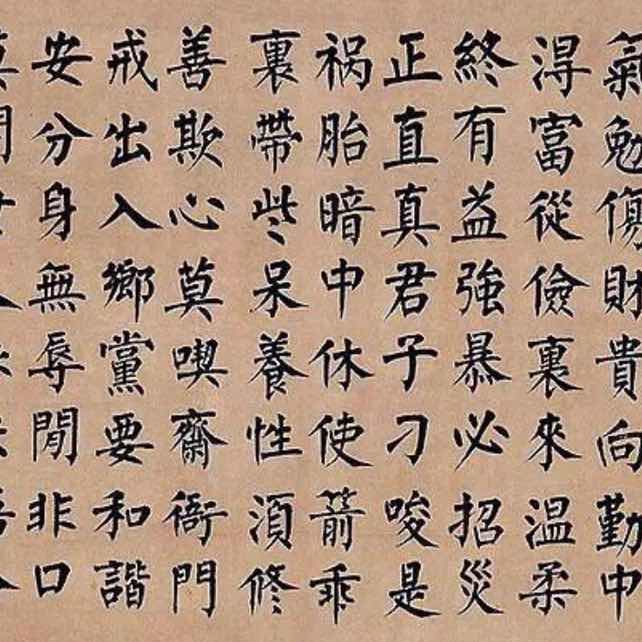 氣勉傷財貴向勤中
淂富從儉裏來温柔
終有益強暴必招災
正直真君子刁唆是
祸胎暗中休使箭乖
裏帶些呆養性湏修
善欺心莫喫齋衙門
戒出入鄉黨要和諧
安分身無辱閒非口